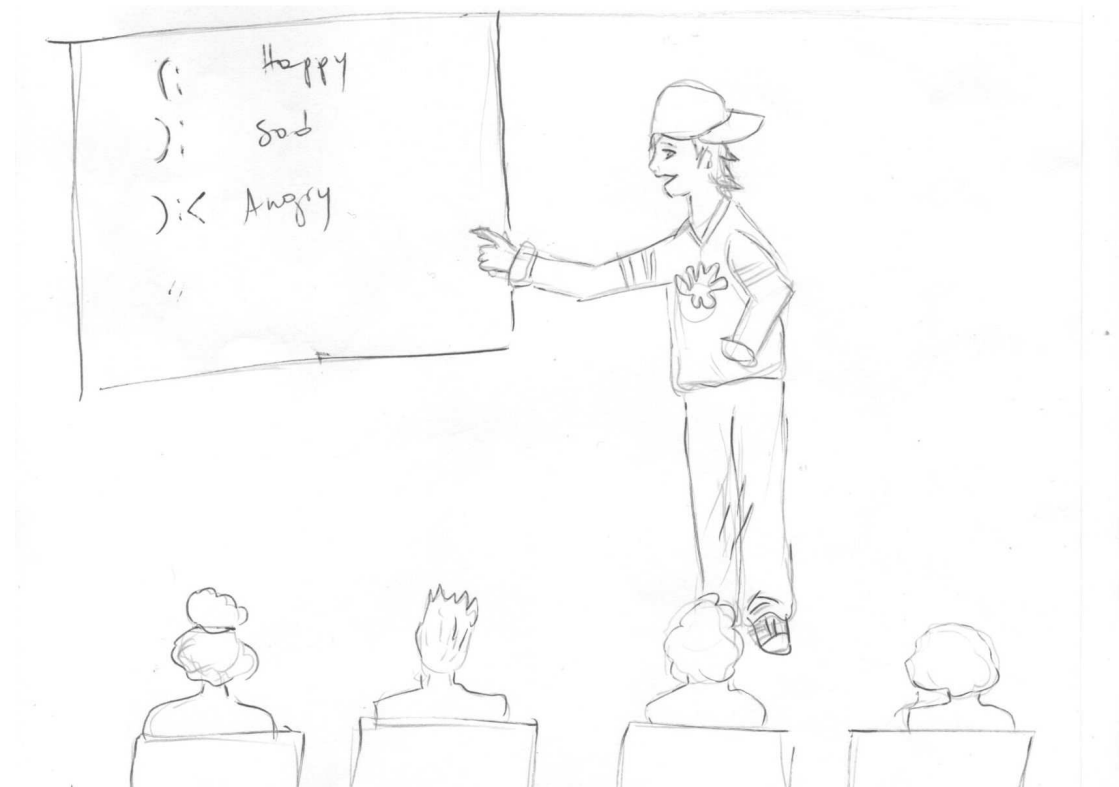 (: Happy
): Sad
):< Angry
"